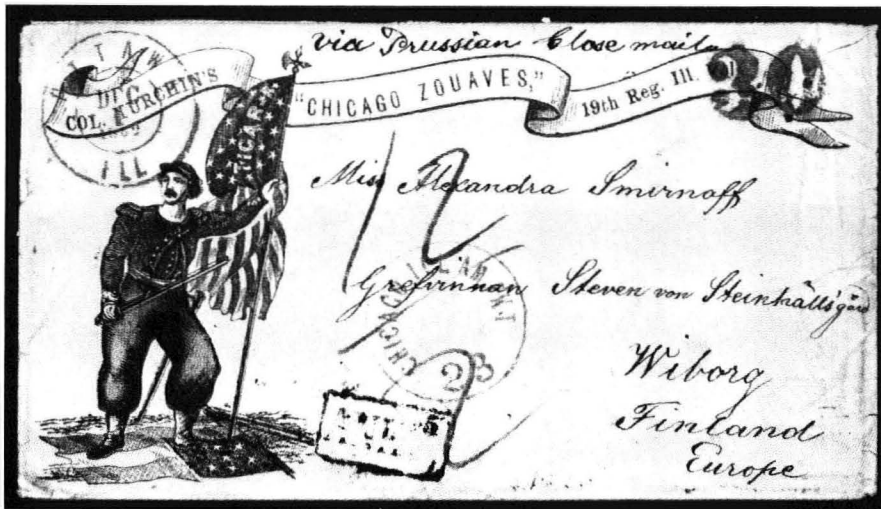 via Prussian Close mail
COL. TURCHIN'S
"CHICAGO ZOUAVES,"
19th Reg. Ill.
DEC
ILL
Miss Alexandra Smirnoff
12
Grefvinnan Steven von Steinhällsgård
CHICAGO ILL. AM. PKT
23
Wiborg
Finland
Europe